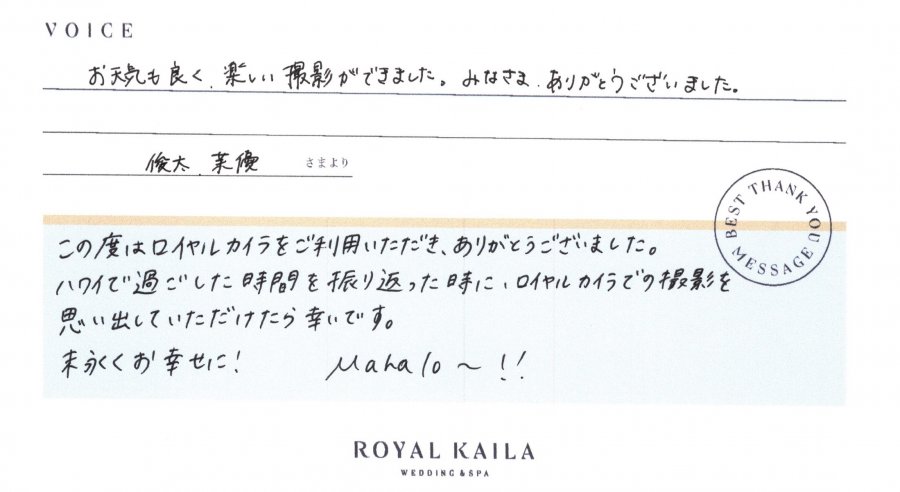 VOICE
お天気も良く、楽しい撮影ができました。みなさま、ありがとうございました。
俊太 茉優 さまより
BEST THANK YOU MESSAGE
この度はロイヤルカイラをご利用いただき、ありがとうございました。
ハワイで過ごした時間を振り返った時に、ロイヤルカイラでの撮影を
思い出していただけたら幸いです。
末永くお幸せに! Mahalo〜!!
ROYAL KAILA
WEDDING & SPA